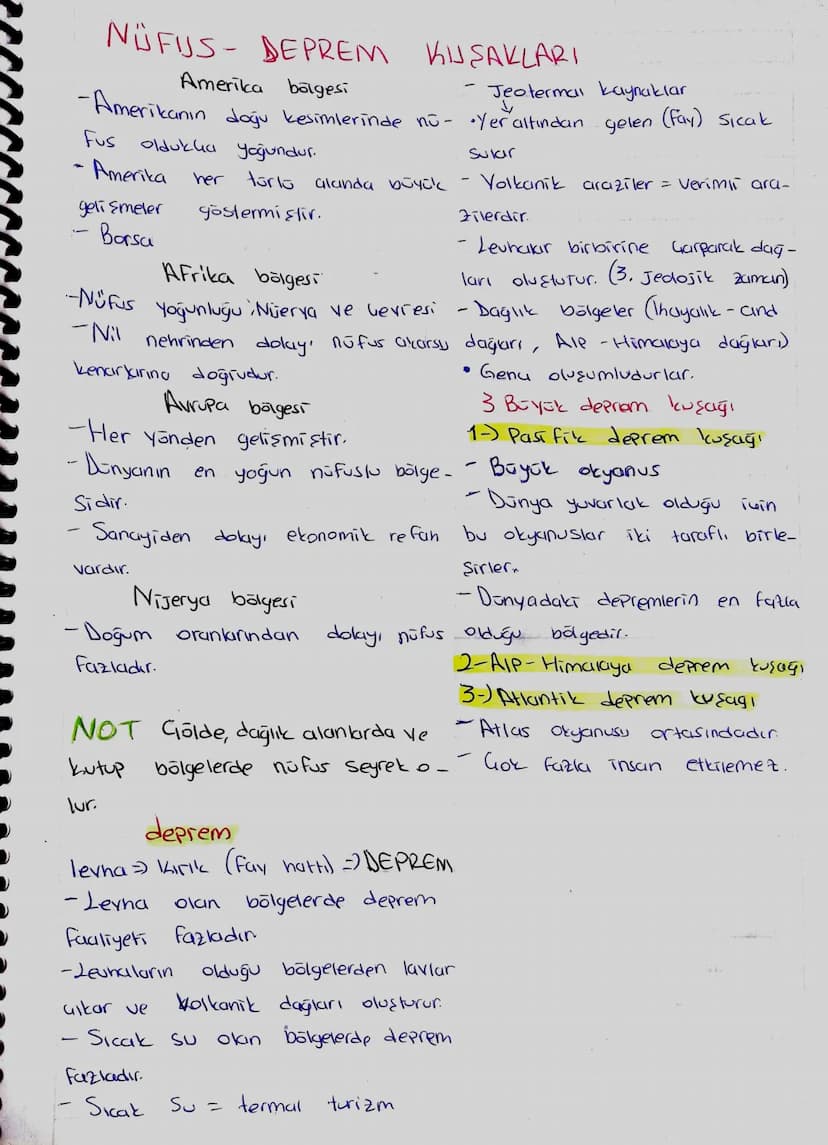 NÜFUS - DEPREM KUŞAKLARI
Amerika bölgesi
- Amerikanın doğu kesimlerinde nü-
fus oldukça yoğundur.
- Amerika her türlü alanda büyük
gelişmeler göstermiştir.
- Borsa
Afrika bölgesi
- Nüfus yoğunluğu; Nijerya ve çevresi
- Nil nehrinden dolayı nüfus akarsu
kenarlarına doğrudur.
Avrupa bölgesi
- Her yönden gelişmiştir.
- Dünyanın en yoğun nüfuslu bölge-
sidir.
- Sanayiden dolayı ekonomik refah
vardır.
Nijerya bölgesi
- Doğum oranlarından dolayı nüfus
fazladır.
NOT Çölde, dağlık alanlarda ve
kutup bölgelerde nüfus seyrek o-
lur.
deprem
levha => Kırık (Fay hattı) => DEPREM
- Levha olan bölgelerde deprem
faaliyeti fazladır.
- Levhaların olduğu bölgelerden lavlar
çıkar ve volkanik dağları oluşturur.
- Sıcak su olan bölgelerde deprem
fazladır.
- Sıcak su = termal turizm
- Jeotermal kaynaklar
↓
• Yer altından gelen (fay) sıcak
sular
- Volkanik araziler = verimli ara-
zilerdir.
- Levhalar birbirine çarparak dağ-
ları oluşturur. (3. Jeolojik zaman)
- Dağlık bölgeler (, And
dağları, Alp - Himalaya dağları)
• Genç oluşumludurlar.
3 Büyük deprem kuşağı
1-) Pasifik deprem kuşağı
- Büyük okyanus
- Dünya yuvarlak olduğu için
bu okyanuslar iki taraflı birle-
şirler.
- Dünyadaki depremlerin en fazla
olduğu bölgedir.
2- Alp - Himalaya deprem kuşağı
3-) Atlantik deprem kuşağı
- Atlas okyanusu ortasındadır.
- Çok fazla insan etkilemez.